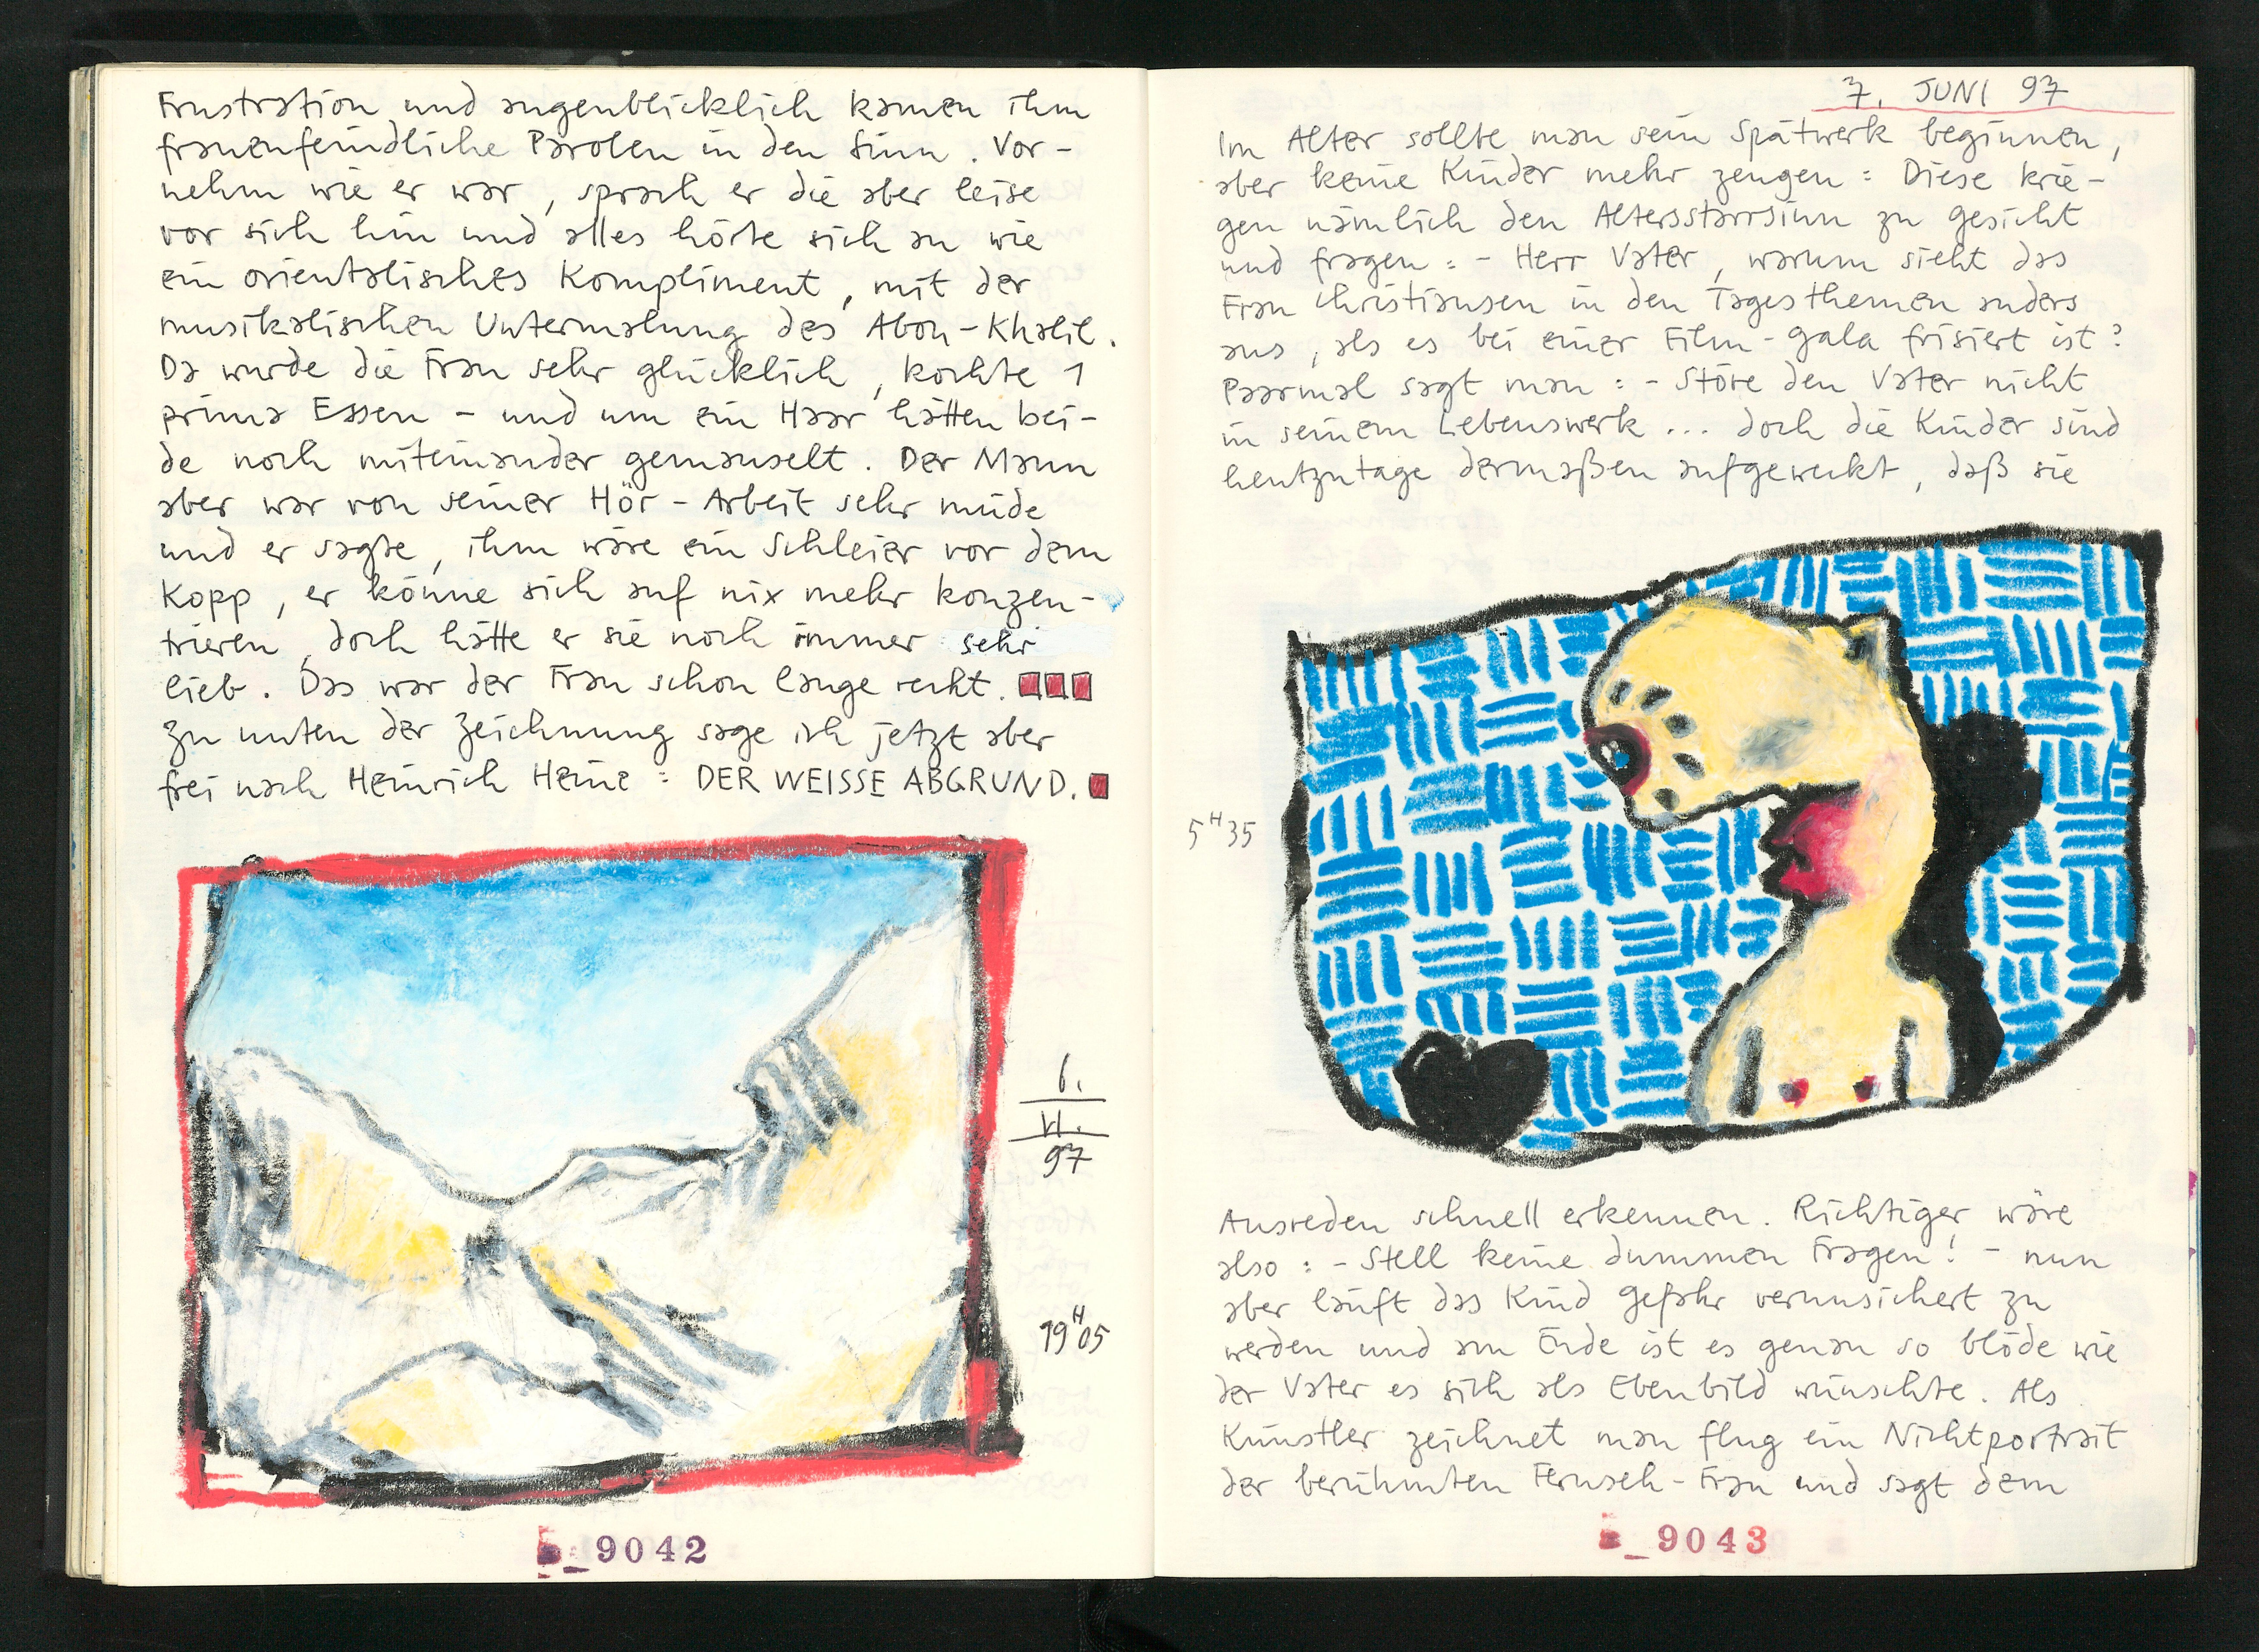 Frustration und augenblicklich kamen ihm
frauenfeindliche Parolen in den Sinn. Vor-
nehm wie er war, sprach er die aber leise
vor sich hin und alles hörte sich an wie
ein orientalisches Kompliment, mit der
musikalischen Untermalung des Abou-Khalil.
Da wurde die Frau sehr glücklich, kochte 1
prima Essen - und um ein Haar hätten bei-
de noch miteinander gemauselt. Der Mann
aber war von seiner Hör-Arbeit sehr müde
und er sagte, ihm wäre ein Schleier vor dem
Kopp, er könne sich auf nix mehr konzen-
trieren, doch hätte er sie noch immer sehr
lieb. Das war der Frau schon lange recht.
Zu unten der Zeichnung sage ich jetzt aber
frei nach Heinrich Heine: DER WEISSE ABGRUND.
6.
VI.
97
19H05
9042
7. JUNI 97
Im Alter sollte man sein Spätwerk beginnen,
aber keine Kinder mehr zeugen: Diese krie-
gen nämlich den Altersstarrsinn zu Gesicht
und fragen: - Herr Vater, warum sieht das
Frau Christiansen in den Tagesthemen anders
aus, als es bei einer Film-Gala frisiert ist?
Paarmal sagt man: - Störe den Vater nicht
in seinem Lebenswerk... doch die Kinder sind
heutzutage dermaßen aufgeweckt, daß sie
5H35
Ausreden schnell erkennen. Richtiger wäre
also: - Stell keine dummen Fragen! - nun
aber läuft das Kind Gefahr verunsichert zu
werden und am Ende ist es genau so blöde wie
der Vater es sich als Ebenbild wünschte. Als
Künstler zeichnet man flug ein Nichtportrait
der berühmten Fernseh-Frau und sagt dem
9043